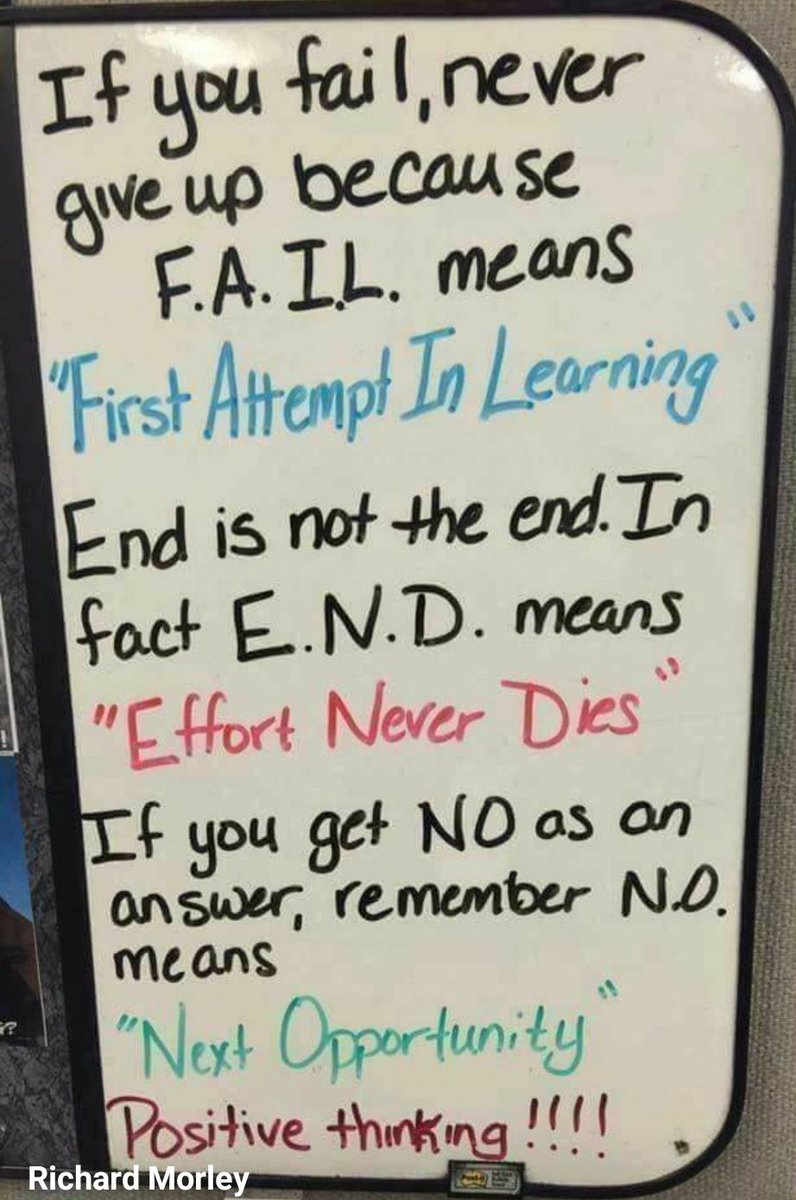 If you fail, never
give up because
F.A.I.L. means
"First Attempt In Learning"
End is not the end. In
fact E.N.D. means
"Effort Never Dies"
If you get NO as an
answer, remember N.O.
means
"Next Opportunity"
Positive thinking!!!!
Post-it
Richard Morley